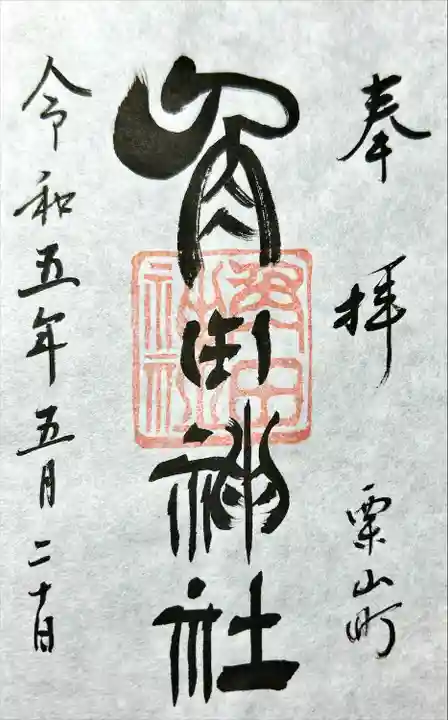 奉拝 栗山町
角田神社
令和五年五月二十日